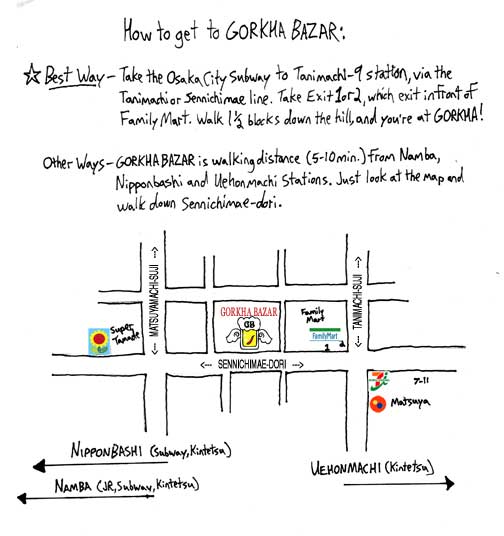 How to get to GORKHA BAZAR:
☆ Best Way – Take the Osaka City Subway to Tanimachi-9 station, via the
Tanimachi or Sennichimae line. Take Exit 1 or 2, which exit in front of
Family Mart. Walk 1½ blocks down the hill, and you're at GORKHA!
Other Ways – GORKHA BAZAR is walking distance (5-10 min.) from Namba,
Nipponbashi and Uehonmachi Stations. Just look at the map and
walk down Sennichimae-dori.
←MATSUYAMACHI-SUJI→
←TANIMACHI-SUJI→
GORKHA BAZAR
GB
Family
Mart
FamilyMart
1 2
Super
Tamade
← SENNICHIMAE-DORI →
7-11
Matsuya
NIPPONBASHI (Subway, Kintetsu)
UEHONMACHI (Kintetsu)
NAMBA (JR, Subway, Kintetsu)